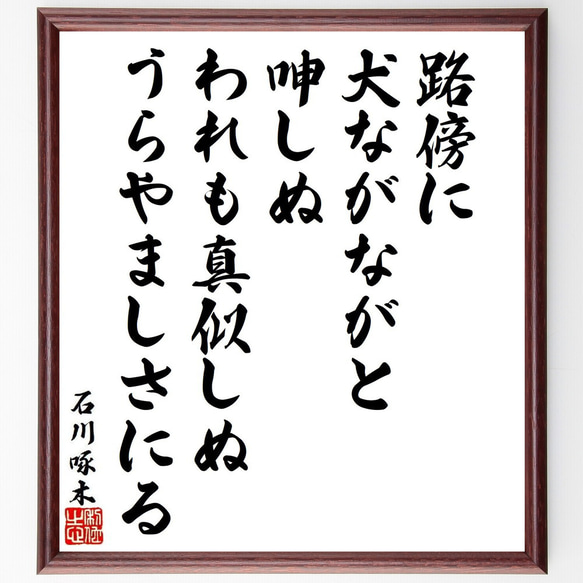 路傍に
犬ながながと
呻しぬ
われも真似しぬ
うらやましさにる
石川啄木